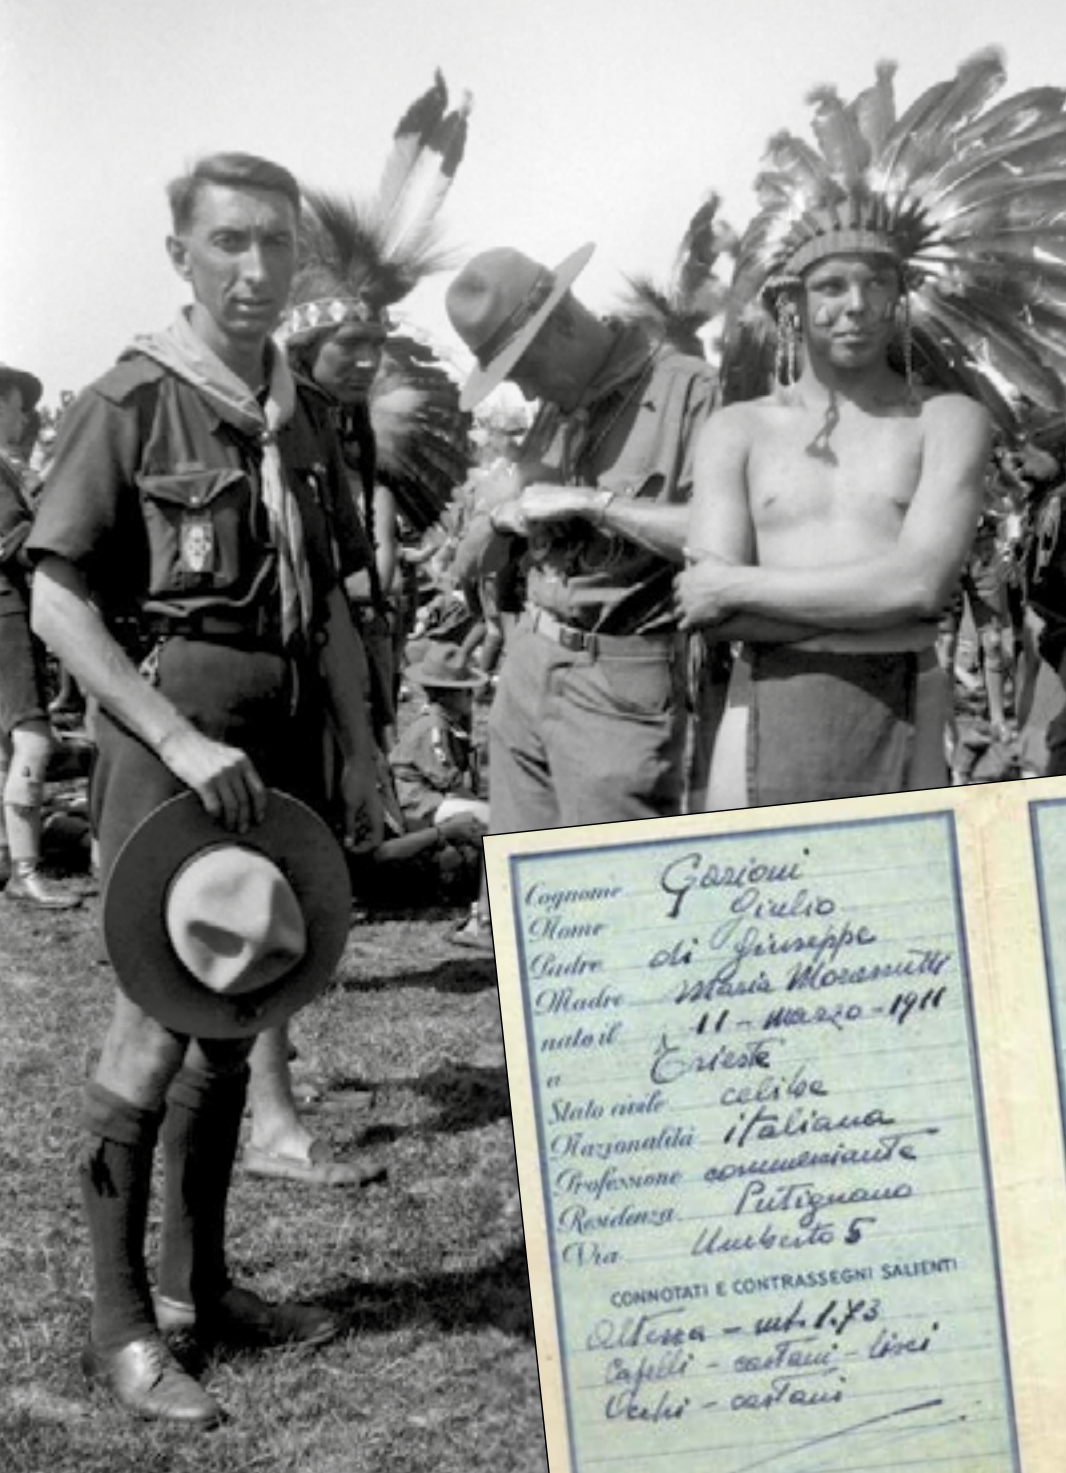 Cognome Garioni
Nome Giulio
Padre di Giuseppe
Madre Maria Morassutti
nato il 11 - marzo - 1911
a Trieste
Stato civile celibe
Nazionalità italiana
Professione commerciante
Residenza Putignano
Via Umberto 5
CONNOTATI E CONTRASSEGNI SALIENTI
Altezza - mt. 1.73
Capelli - castani - lisci
Occhi - castani